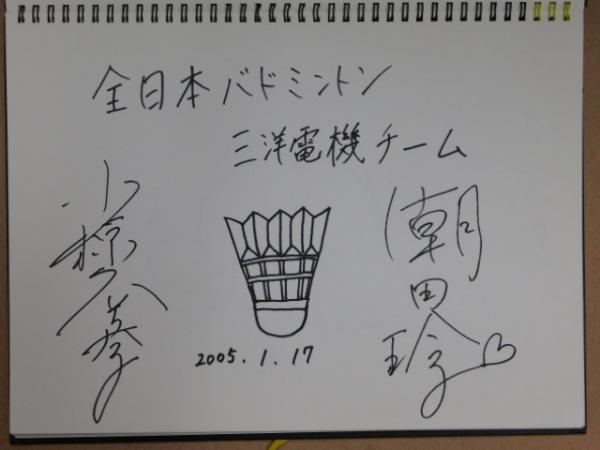 全日本バドミントン
三洋電機チーム
小椋久美子
潮田玲子
2005.1.17